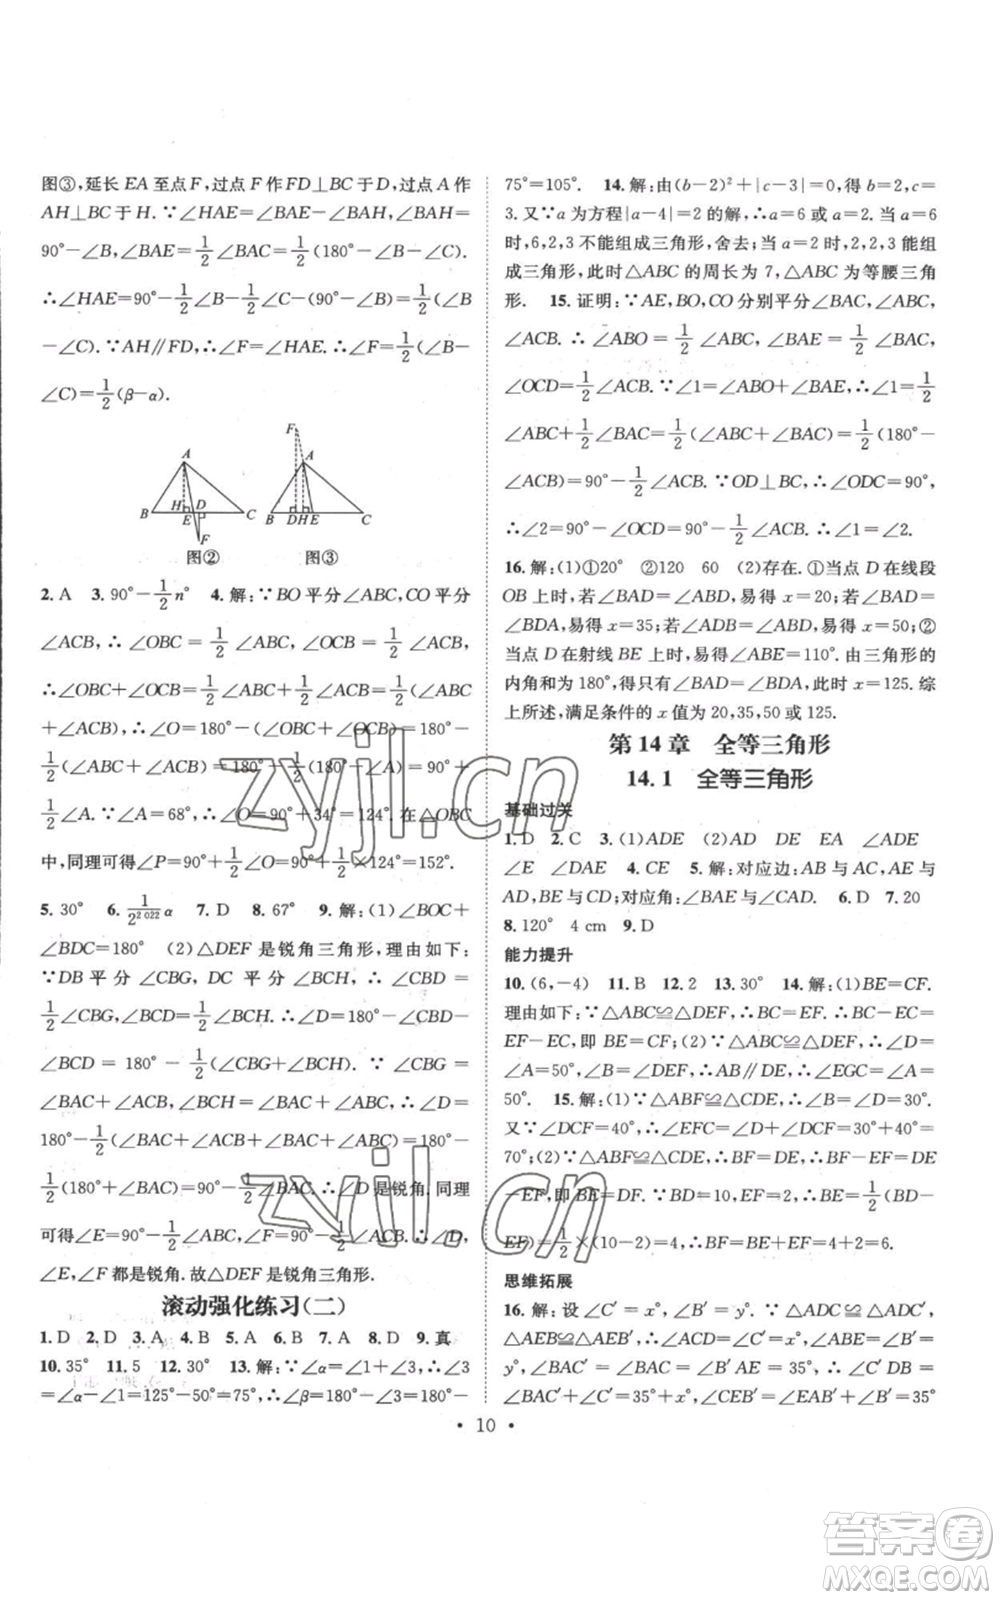 图③,延长 EA 至点 F,过点 F 作 FD⊥BC 于 D,过点 A 作
AH⊥BC 于 H. ∵∠HAE=∠BAE-∠BAH,∠BAH=
90°-∠B,∠BAE=1/2∠BAC=1/2(180°-∠B-∠C).
∴∠HAE=90°-1/2∠B-1/2∠C-(90°-∠B)=1/2(∠B
-∠C). ∵AH∥FD,∴∠F=∠HAE. ∴∠F=1/2(∠B-
∠C)=1/2(β-α).
A
H D
B E C
F
图②
F
A
B D H E C
图③
2. A 3. 90°-1/2 n° 4. 解:∵BO 平分∠ABC,CO 平分
∠ACB,∴∠OBC=1/2∠ABC,∠OCB=1/2∠ACB.
∴∠OBC+∠OCB=1/2∠ABC+1/2∠ACB=1/2(∠ABC
+∠ACB). ∴∠O=180°-(∠OBC+∠OCB)=180°-
1/2(∠ABC+∠ACB)=180°-1/2(180°-∠A)=90°+
1/2∠A. ∵∠A=68°,∴∠O=90°+34°=124°. 在△OBC
中,同理可得∠P=90°+1/2∠O=90°+1/2×124°=152°.
5. 30° 6. 1/2^2022 α 7. D 8. 67° 9. 解:(1)∠BOC+
∠BDC=180° (2)△DEF 是锐角三角形,理由如下:
∵DB 平分∠CBG,DC 平分∠BCH,∴∠CBD=
1/2∠CBG,∠BCD=1/2∠BCH. ∴∠D=180°-∠CBD-
∠BCD=180°-1/2(∠CBG+∠BCH). ∵∠CBG=
∠BAC+∠ACB,∠BCH=∠BAC+∠ABC,∴∠D=
180°-1/2(∠BAC+∠ACB+∠BAC+∠ABC)=180°-
1/2(180°+∠BAC)=90°-1/2∠BAC. ∴∠D 是锐角. 同理
可得∠E=90°-1/2∠ABC,∠F=90°-1/2∠ACB. ∴∠D,
∠E,∠F 都是锐角. 故△DEF 是锐角三角形.
滚动强化练习(二)
1. D 2. D 3. A 4. B 5. A 6. B 7. A 8. D 9. 真
10. 35° 11. 5 12. 30° 13. 解:∵∠α=∠1+∠3,∴∠3
=∠α-∠1=125°-50°=75°,∴∠β=180°-∠3=180°-
75°=105°. 14. 解:由(b-2)²+|c-3|=0,得 b=2,c=
3. 又∵a 为方程|a-4|=2 的解,∴a=6 或 a=2. 当 a=6
时,6,2,3 不能组成三角形,舍去;当 a=2 时,2,2,3 能组
成三角形,此时△ABC 的周长为 7,△ABC 为等腰三角
形. 15. 证明:∵AE,BO,CO 分别平分∠BAC,∠ABC,
∠ACB. ∴∠ABO=1/2∠ABC,∠BAE=1/2∠BAC,
∠OCD=1/2∠ACB. ∵∠1=∠ABO+∠BAE,∴∠1=1/2
∠ABC+1/2∠BAC=1/2(∠ABC+∠BAC)=1/2(180°-
∠ACB)=90°-1/2∠ACB. ∵OD⊥BC,∴∠ODC=90°,
∴∠2=90°-∠OCD=90°-1/2∠ACB. ∴∠1=∠2.
16. 解:(1)①20° ②120 60 (2)存在. ①当点 D 在线段
OB 上时,若∠BAD=∠ABD,易得 x=20;若∠BAD=
∠BDA,易得 x=35;若∠ADB=∠ABD,易得 x=50;②
当点 D 在射线 BE 上时,易得∠ABE=110°. 由三角形的
内角和为 180°,得只有∠BAD=∠BDA,此时 x=125. 综
上所述,满足条件的 x 值为 20,35,50 或 125.
第 14 章 全等三角形
14.1 全等三角形
基础过关
1. D 2. C 3. (1)ADE (2)AD DE EA ∠ADE
∠E ∠DAE 4. CE 5. 解:对应边:AB 与 AC,AE 与
AD,BE 与 CD;对应角:∠BAE 与∠CAD. 6. D 7. 20
8. 120° 4 cm 9. D
能力提升
10. (6,-4) 11. B 12. 2 13. 30° 14. 解:(1)BE=CF.
理由如下:∵△ABC≌△DEF,∴BC=EF. ∴BC-EC=
EF-EC,即 BE=CF;(2)∵△ABC≌△DEF,∴∠D=
∠A=50°,∠B=∠DEF,∴AB∥DE,∴∠EGC=∠A=
50°. 15. 解:(1)∵△ABF≌△CDE,∴∠B=∠D=30°.
又∵∠DCF=40°,∴∠EFC=∠D+∠DCF=30°+40°=
70°;(2)∵△ABF≌△CDE,∴BF=DE,∴BF-EF=DE
-EF,即 BE=DF. ∵BD=10,EF=2,∴BE=1/2(BD-
EF)=1/2×(10-2)=4,∴BF=BE+EF=4+2=6.
思维拓展
16. 解:设∠C′=x°,∠B′=y°. ∵△ADC≌△ADC′,
△AEB≌△AEB′,∴∠ACD=∠C′=x°,∠ABE=∠B′=
y°,∠BAC′=∠BAC=∠B′AE=35°,∴∠C′DB=
∠BAC′+∠ACD=35°+x°,∠CEB′=∠EAB′+∠B′=35°
· 10 ·
zyjl.cn
zyjl.cn
答案圈
MXQE.COM